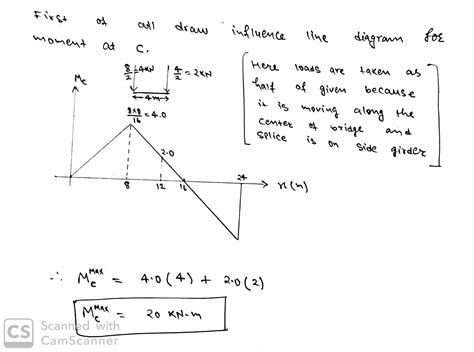 First of all draw influence line diagram for
moment at C.
[Here loads are taken as
half of given because
it is moving along the
center of bridge and
splice is on side girder]
8/2=4KN 4/2=2KN
4m
Mc
8×8/16=4.0
2.0
8 12 16 24 x(m)
∴ Mc^Max = 4.0(4) + 2.0(2)
Mc^Max = 20 KN-m
CS Scanned with
CamScanner